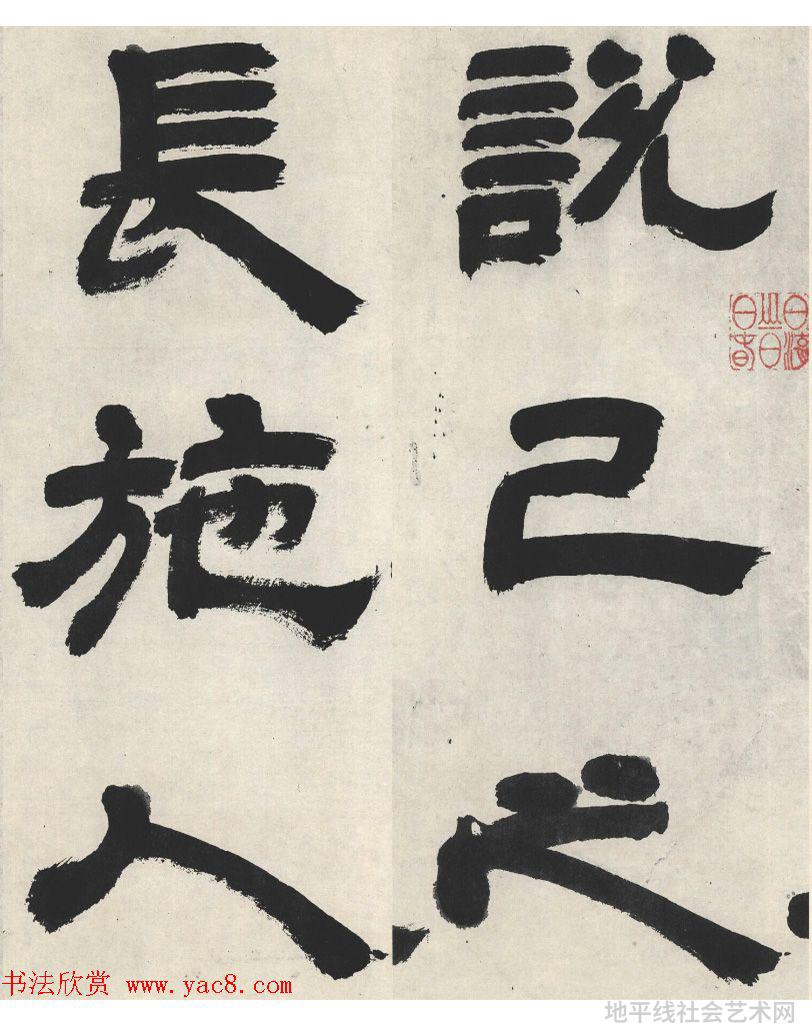 說己之
長施人
书法欣赏 www.yac8.com
地平线社会艺术网